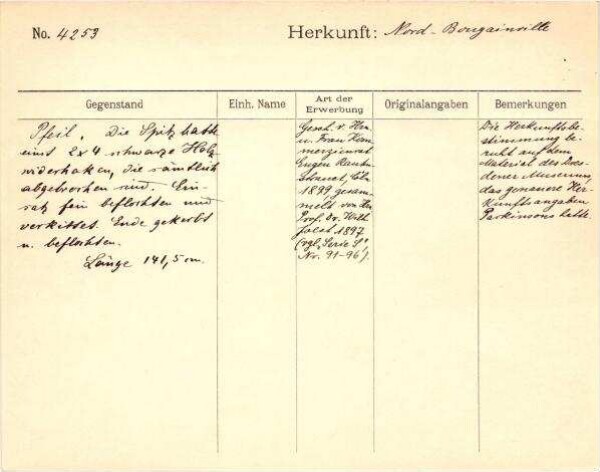 No. 4253
Herkunft: Nord-Bougainville
Gegenstand
Einh. Name
Art der
Erwerbung
Originalangaben
Bemerkungen
Pfeil. Die Spitz hatte
einst 2x4 schwarze Holz-
widerhaken, die sämtlich
abgebrochen sind. Ein-
satz fein beflochten und
verkittet. Ende gekerbt
u. beflochten.
Länge 141,5 cm.
Gesch. v. Hrn.
u. Frau Kom-
merzienrat
Eugen Raut-
strauch, Cöln
1899 gesam-
melt von Hrn
Prof. Dr. Wilh.
Joest 1897
(vgl. Serie S,
Nr. 91-96).
Die Herkunftsbe-
stimmung be-
ruht auf dem
Material des Dres-
dener Museums,
das genauere Her-
kunftsangaben
Parkinsons hatte.